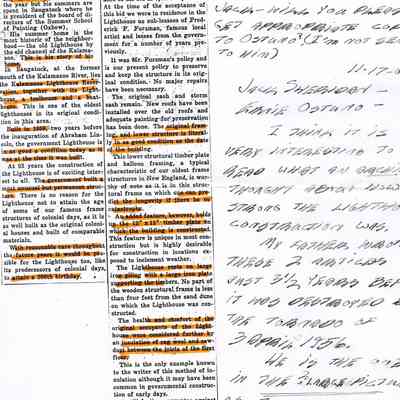 the year but his summers are
spent in Saugatuck where he
is president of the board of di-
rectors of the Summer School
of Painting (Oxbow).
His summer home is the
most historic of the neighbor-
hood—the old Lighthouse by
the old channel of the Kalama-
zoo. This is his story of it:
In Saugatuck, at the former
mouth of the Kalamazoo River, lies
together with its Light-
house, a
This is one of the oldest
lighthouses in its original condi-
tion in this area.
Built in 1859, two years before
the inauguration of Abraham Lin-
coln, the government Lighthouse is
in as good a condition today as it
was at the time it was built.
At 93 years the construction of
the Lighthouse is of exciting inter-
est to all. The government built a
most unusual but permanent struc-
ture. There is no reason for the
Lighthouse not to attain the age
of some of our famous frame
structures of colonial days, as it is
as well built as the original coloni-
al houses and built of comparable
materials.
With reasonable care throughout
the future years it would be pos-
sible for the Lighthouse too, like
its predecessors of colonial days,
to attain a 200th birthday.
At the time of the acceptance of
this bid we were in residence in the
Lighthouse as sub-lessees of Fred-
erick F. Fursman, famous local
artist and lessee from the govern-
ment for a number of years pre-
viously.
It was Mr. Fursman's policy and
is our present policy to preserve
and keep the structure in its orig-
inal condition. No major repairs
have been necessary.
The original sash and storm
sash remain. New roofs have been
installed over the old roofs and
adequate painting for preservation
has been done. The original fram-
ing, and lower structure is literal-
ly in as good condition as the date
of the building.
This lower structural timber plate
and balloon framing, a typical
characteristic of our oldest frame
structures in New England, is wor-
thy of note as it is in this struc-
tural frame on which one can pre-
dict the longevity if there be no
catastrophe.
An added feature, however, holds
up the 12"x12" timber plate on
which the building is constructed.
This feature is unique in most con-
struction but is highly desirable
for construction in locations ex-
posed to inclement weather.
The Lighthouse rests on large
oak piling with a large iron plate
supporting the timbers. No part of
the wooden structural frame is less
than four feet from the sand dune
on which the Lighthouse was con-
structed.
The health and comfort of the
original occupants of the Light-
house were considered further by
an insulation of rag wool and saw-
dust between the joists of the first
floor.
This is the only example known
to the writer of this method of in-
sulation although it may have been
common in governmental construc-
tion of early days.
JACK - WILL YOU PLEASE
GET APPROPRIATE
TO OSTURO? (I'M NOT
TO HIM)
11-17-
JACK SHERIDAN -
OSTURO -
I THINK IT IS
VERY INTERESTING TO
READ WHAT AN
THOUGHT ABOUT HOW
STRONG THE
CONSTRUCTION WAS.
MY FATHER WROTE
THESE 2 ARTICLES
JUST 3 1/2 YEARS BEFORE
IT WAS DESTROYED BY
THE TORNADO OF
3 APRIL 1956.
HE IS THE ONE
IN THE